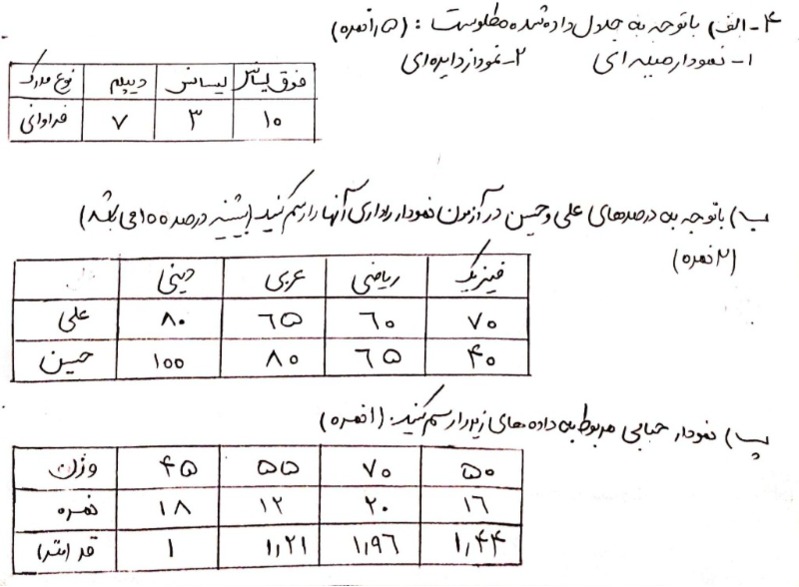 ۴- الف) باتوجه به جدول داده شده مطلوبست : (۱٫۵ نمره)
۱- نمودار میله ای ۲- نمودار دایره ای
نوع مدرک دیپلم لیسانس فوق لیسانس
فراوانی ۷ ۳ ۱۰
ب) باتوجه به درصدهای علی و حسین در آزمون نمودار راداری آنها را رسم کنید (بیشینه درصد ۱۰۰ می باشد)
(۲ نمره)
دینی عربی ریاضی فیزیک
علی ۸۰ ۶۵ ۶۰ ۷۰
حسین ۱۰۰ ۸۰ ۶۵ ۴۰
پ) نمودار حبابی مربوط به داده های زیر را رسم کنید: (۱ نمره)
وزن ۴۵ ۵۵ ۷۰ ۵۰
نمره ۱۸ ۱۲ ۲۰ ۱۶
قد (متر) ۱ ۱٫۲۱ ۱٫۹۶ ۱٫۴۴